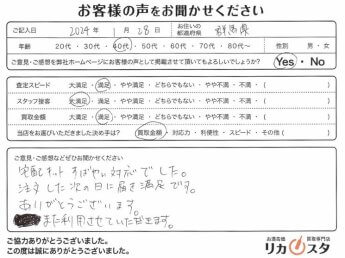 お客様の声をお聞かせください
ご記入日 2024年 1月 28日 お住いの都道府県 群馬県
年齢 20代・30代・40代・50代・60代・70代・80代〜 性別 男・女
ご意見・ご感想を弊社ホームページにお客様の声として掲載させて頂いてもよろしいでしょうか? Yes・No
査定スピード 大満足・満足・やや満足・どちらでもない・やや不満・不満・( )
スタッフ接客 大満足・満足・やや満足・どちらでもない・やや不満・不満・( )
買取金額 大満足・満足・やや満足・どちらでもない・やや不満・不満・( )
当店をお選びいただきました決め手は? 買取金額・対応力・利便性・スピード・その他( )
ご意見・ご感想などぜひお聞かせください
宅配キットすばやい対応でした。
注文した次の日に届き満足です。
ありがとうございます。
また利用させていただきます。
ご協力ありがとうございました。
この度は誠にありがとうございました。
お酒高価買取専門店
リカスタ